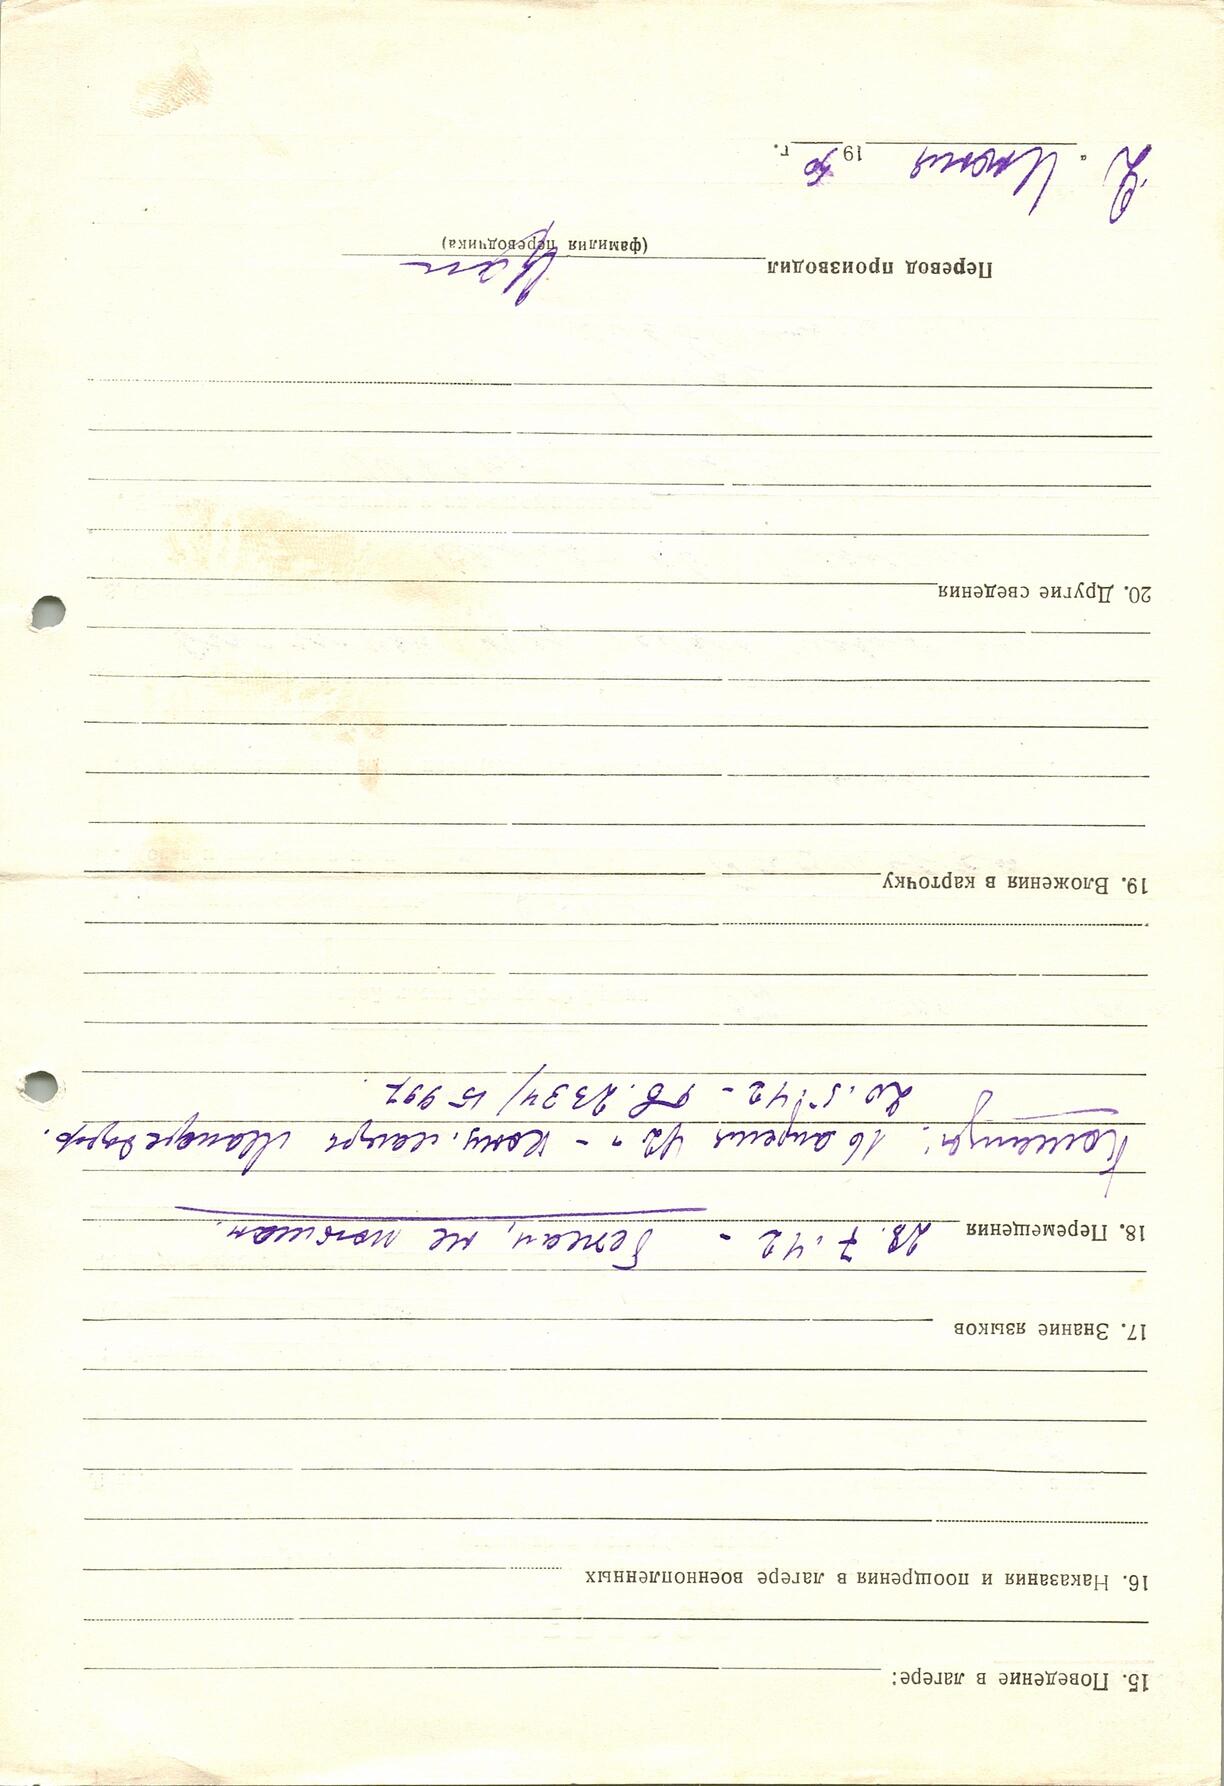 15. Поведение в лагере:
16. Наказания и поощрения в лагере военнопленных
17. Знание языков
18. Перемещения 23.7.42 - бежал, не пойман.
16 апреля 42 г. - конц. лагерь
20.5.42 - 2334/15992.
19. Вложения в карточку
20. Другие сведения
Перевод производил
(фамилия переводчика)
"2" Июня 1950 г.